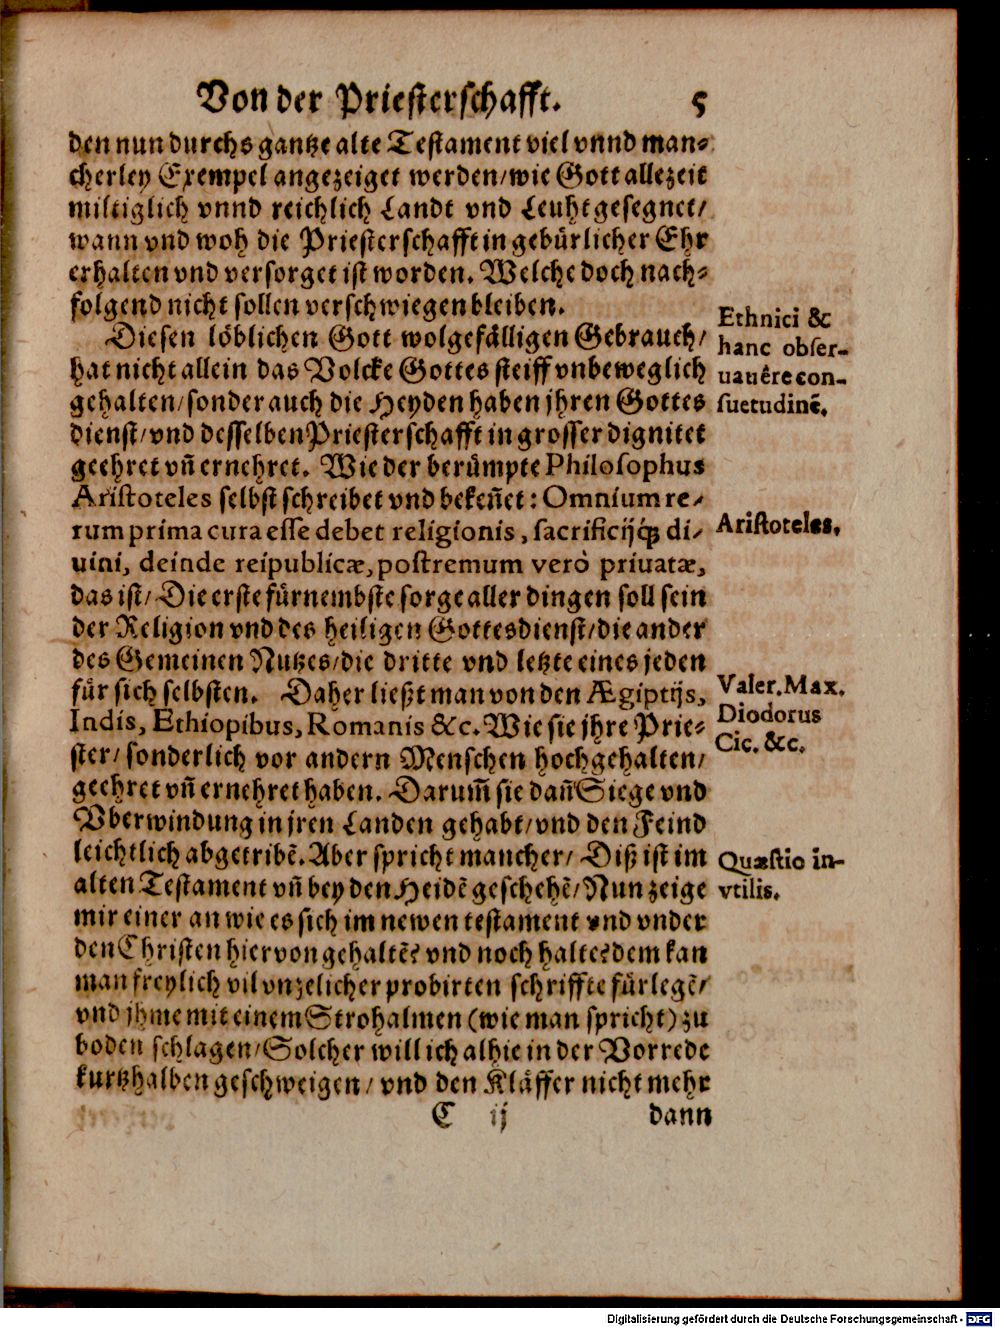 Von der Priesterschafft. 5
den nun durchs gantze alte Testament viel vnnd man⸗
cherley Exempel angezeiget werden/wie Gott allezeit
miltiglich vnnd reichlich Landt vnd Leuht gesegnet/
wann vnd woh die Priesterschafft in gebürlicher Ehr
erhalten vnd versorget ist worden. Welche doch nach⸗
folgend nicht sollen verschwiegen bleiben.
Diesen löblichen Gott wolgefälligen Gebrauch/
hat nicht allein das Volcke Gottes steiff vnbeweglich
gehalten/sonder auch die Heyden haben jhren Gottes
dienst/vnd desselben Priesterschafft in grosser dignitet
geehret vñ ernehret. Wie der berümpte Philosophus
Aristoteles selbst schreibet vnd bekeñet: Omnium re-
rum prima cura esse debet religionis, sacrificijq́; di-
uini, deinde reipublicæ, postremum verò priuatæ,
das ist/ Die erste fürnembste sorge aller dingen soll sein
der Religion vnd des heiligen Gottesdienst/die ander
des Gemeinen Nutzes/die dritte vnd letzte eines jeden
für sich selbsten. Daher ließt man von den Ægiptijs,
Indis, Ethiopibus, Romanis &c. Wie sie jhre Prie⸗
ster/ sonderlich vor andern Menschen hochgehalten/
geehret vñ ernehret haben. Darum̃ sie dañ Siege vnd
Vberwindung in jren Landen gehabt/vnd den Feind
leichtlich abgetribẽ. Aber spricht mancher/ Diß ist im
alten Testament vñ bey den Heidẽ geschehẽ/Nun zeige
mir einer an wie es sich im newen testament vnd vnder
den Christen hiervon gehaltẽ? vnd noch halte? dem kan
man freylich vil vnzelicher probirten schriffte fürlegẽ/
vnd jhme mit einem Strohalmen (wie man spricht) zu
boden schlagen/Solcher will ich alhie in der Vorrede
kurtzhalben geschweigen/ vnd den Kläffer nicht mehr
C ij dann
Ethnici &
hanc obser-
uauêre con-
suetudinẽ.
Aristoteles.
Valer. Max.
Diodorus
Cic. &c.
Quæstio in-
vtilis.
Digitalisierung gefördert durch die Deutsche Forschungsgemeinschaft - DFG